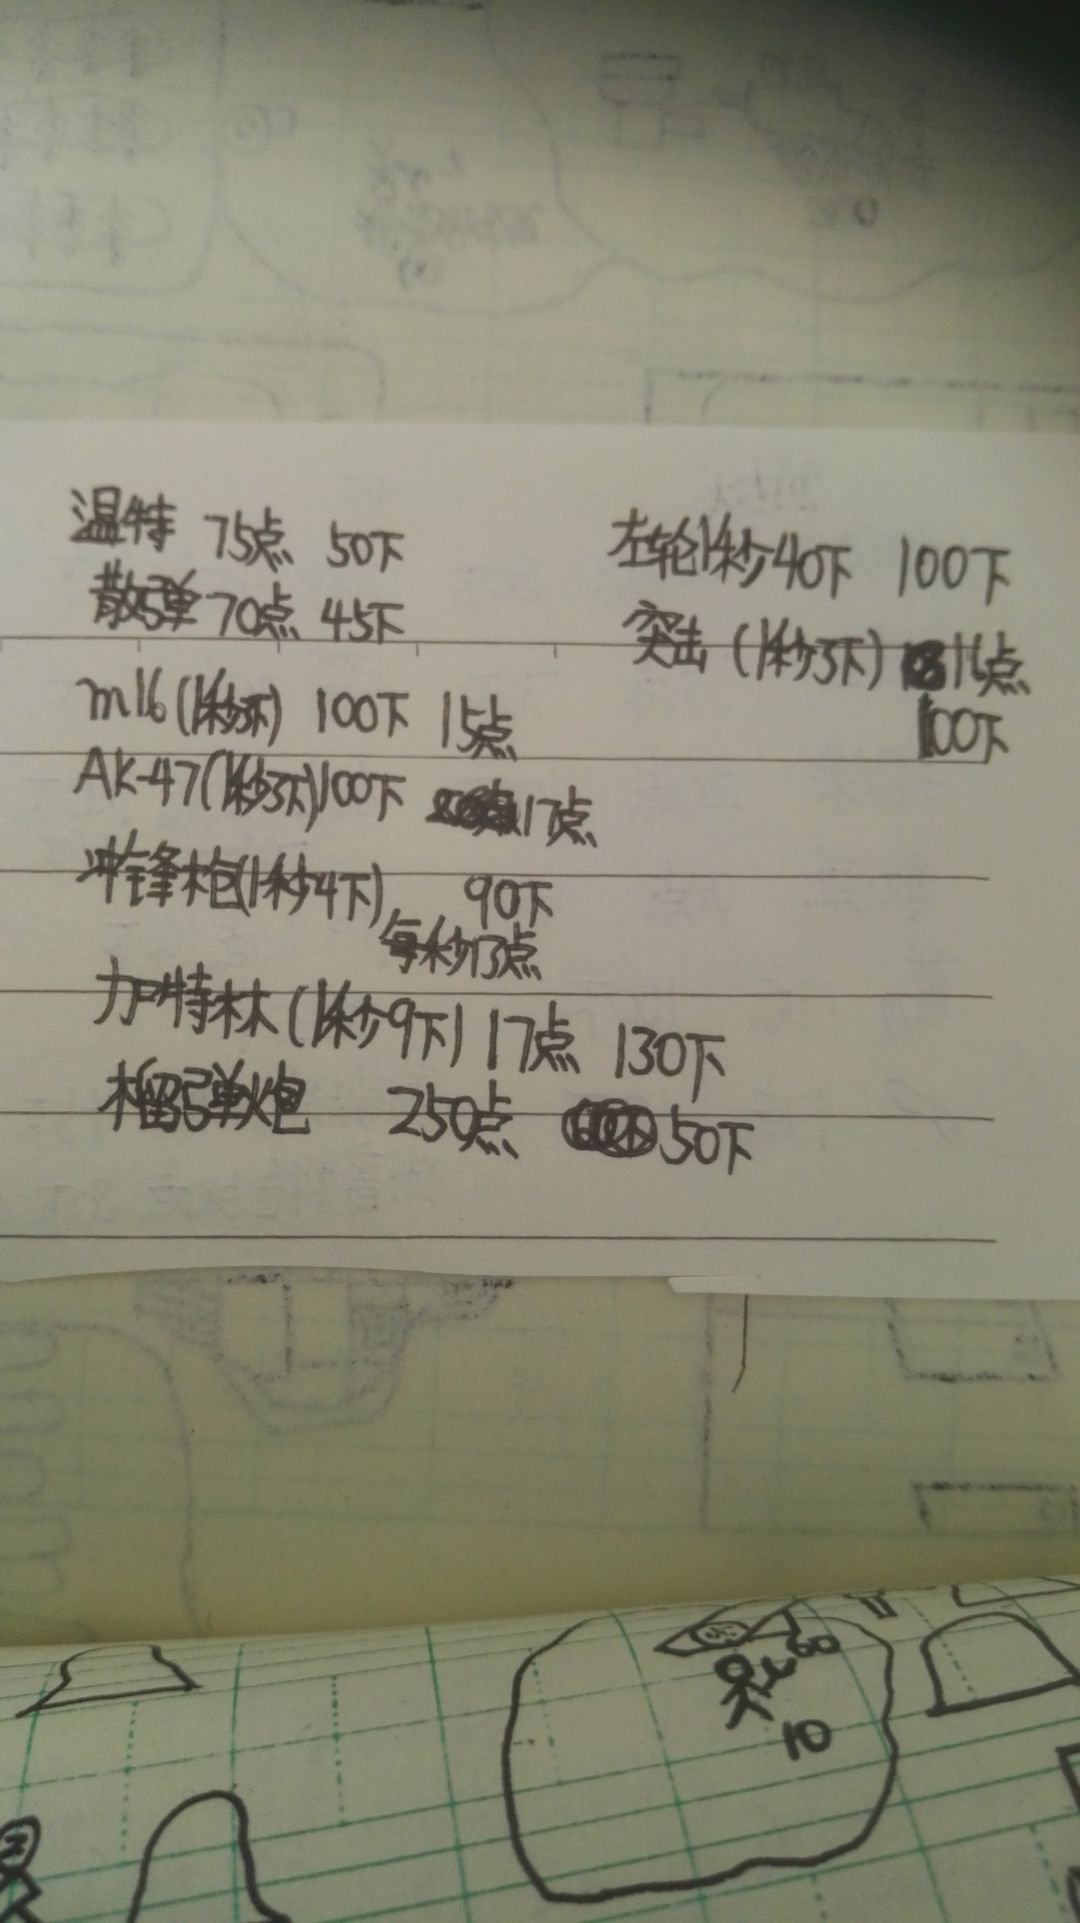 温特 75点 50下
散弹 70点 45下
m16(1秒3下) 100下 15点
AK-47(1秒3下)100下 17点
冲锋枪(1秒4下) 90下
每秒13点
加特林(1秒9下) 17点 130下
榴弹炮 250点 50下
左轮1秒40下 100下
突击(1秒3下) 16点
100下
60
10